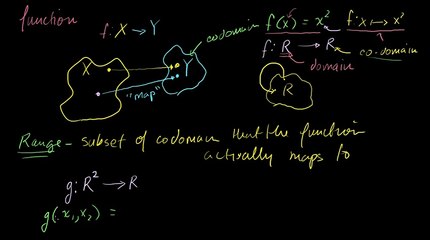 function
f: X → Y
codomain
X
Y
"map"
f(x) = x²
f: x ↦ x²
f: R → R
co-domain
domain
R
Range - subset of codomain that the function
actually maps to
g: R² → R
g(x₁, x₂) =